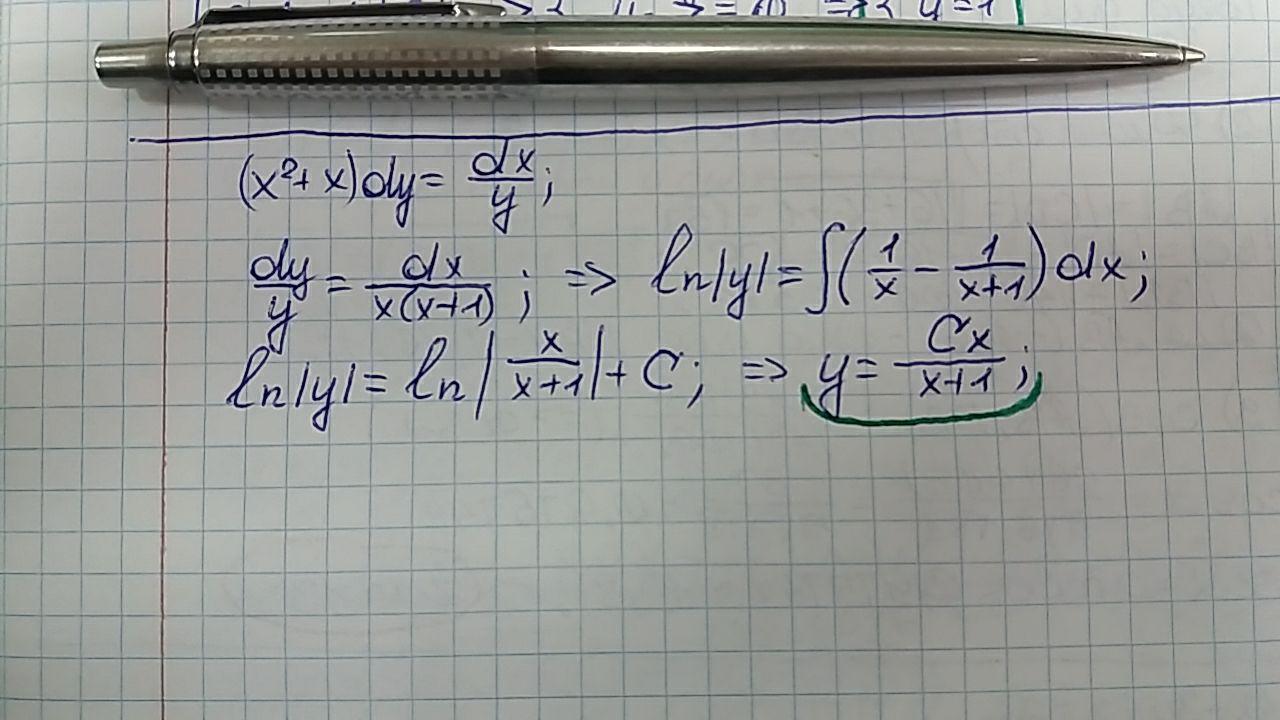 (x²+x)dy = dx/y;
dy/y = dx/(x(x+1)); => ln|y| = ∫(1/x − 1/(x+1))dx;
ln|y| = ln|x/(x+1)| + C; => y = Cx/(x+1);